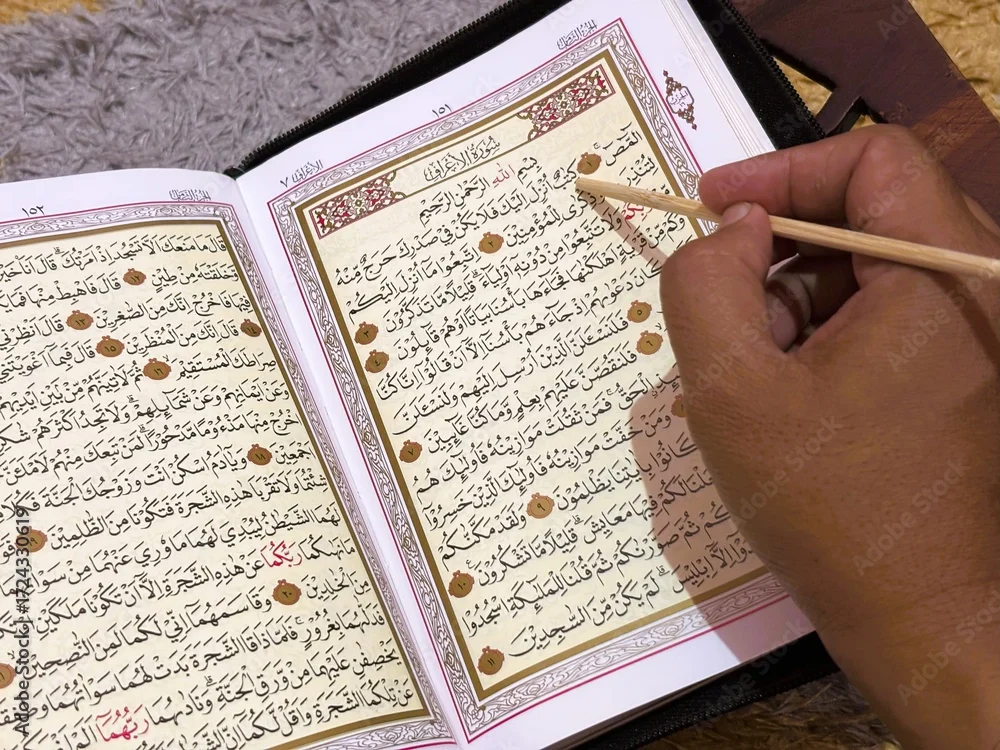 ١٥١
الاعراف ٧
سُورَةُ الْاَعْرَافِ
بِسْمِ اللّٰهِ الرَّحْمٰنِ الرَّحِيمِ
الٓمٓصٓ ١ كِتَابٌ اُنْزِلَ اِلَيْكَ فَلَا يَكُنْ فِي صَدْرِكَ حَرَجٌ مِنْهُ
لِتُنْذِرَ وَذِكْرٰى لِلْمُؤْمِنِينَ ٢ اِتَّبِعُوا مَا اُنْزِلَ اِلَيْكُمْ
وَلَا تَتَّبِعُوا مِنْ دُونِهِ اَوْلِيَاءَ قَلِيلًا مَا تَذَكَّرُونَ ٣
وَكَمْ مِنْ اَهْلَكْنَاهَا فَجَاءَهَا بَأْسُنَا بَيَاتًا اَوْ هُمْ قَائِلُونَ ٤
كَانَ دَعْوٰيهُمْ اِذْ جَاءَهُمْ بَأْسُنَا اِلَّا اَنْ قَالُوا اِنَّا كُنَّا
٥ فَلَنَسْـَٔلَنَّ الَّذِينَ اُرْسِلَ اِلَيْهِمْ وَلَنَسْـَٔلَنَّ
٦ فَلَنَقُصَّنَّ عَلَيْهِمْ بِعِلْمٍ وَمَا كُنَّا غَائِبِينَ ٧
الْحَقُّ فَمَنْ ثَقُلَتْ مَوَازِينُهُ فَاُولٰئِكَ هُمُ
وَمَنْ خَفَّتْ مَوَازِينُهُ فَاُولٰئِكَ الَّذِينَ خَسِرُوا
كَانُوا بِاٰيَاتِنَا يَظْلِمُونَ ٩ وَلَقَدْ مَكَّنَّاكُمْ
وَجَعَلْنَا لَكُمْ فِيهَا مَعَايِشَ قَلِيلًا مَا تَشْكُرُونَ ١٠
ثُمَّ صَوَّرْنَاكُمْ ثُمَّ قُلْنَا لِلْمَلٰئِكَةِ اسْجُدُوا
اِلَّا اِبْلِيسَ لَمْ يَكُنْ مِنَ السَّاجِدِينَ ١١
١٥٢
قَالَ مَا مَنَعَكَ اَلَّا تَسْجُدَ اِذْ اَمَرْتُكَ قَالَ اَنَا خَيْرٌ
خَلَقْتَهُ مِنْ طِينٍ ١٢ قَالَ فَاهْبِطْ مِنْهَا فَمَا
فِيهَا فَاخْرُجْ اِنَّكَ مِنَ الصَّاغِرِينَ ١٣ قَالَ اَنْظِرْنِي
١٤ قَالَ اِنَّكَ مِنَ الْمُنْظَرِينَ ١٥ قَالَ فَبِمَا اَغْوَيْتَنِي
صِرَاطَكَ الْمُسْتَقِيمَ ١٦ ثُمَّ لَاٰتِيَنَّهُمْ مِنْ بَيْنِ اَيْدِيهِمْ
وَعَنْ اَيْمَانِهِمْ وَعَنْ شَمَائِلِهِمْ وَلَا تَجِدُ اَكْثَرَهُمْ
اخْرُجْ مِنْهَا مَذْؤُمًا مَدْحُورًا لَمَنْ تَبِعَكَ مِنْهُمْ لَاَمْلَـَٔنَّ
اَجْمَعِينَ ١٨ وَيَا اٰدَمُ اسْكُنْ اَنْتَ وَزَوْجُكَ الْجَنَّةَ فَكُلَا
شِئْتُمَا وَلَا تَقْرَبَا هٰذِهِ الشَّجَرَةَ فَتَكُونَا مِنَ الظَّالِمِينَ ١٩
لَهُمَا الشَّيْطَانُ لِيُبْدِيَ لَهُمَا مَا وُرِيَ عَنْهُمَا مِنْ
مَا نَهٰيكُمَا رَبُّكُمَا عَنْ هٰذِهِ الشَّجَرَةِ اِلَّا اَنْ تَكُونَا مَلَكَيْنِ
مِنَ الْخَالِدِينَ ٢٠ وَقَاسَمَهُمَا اِنِّي لَكُمَا لَمِنَ النَّاصِحِينَ
فَدَلّٰيهُمَا بِغُرُورٍ فَلَمَّا ذَاقَا الشَّجَرَةَ بَدَتْ لَهُمَا سَوْاٰتُهُمَا
يَخْصِفَانِ عَلَيْهِمَا مِنْ وَرَقِ الْجَنَّةِ وَنَادٰيهُمَا رَبُّهُمَا اَلَمْ
عَنْ تِلْكُمَا الشَّجَرَةِ وَاَقُلْ لَكُمَا اِنَّ الشَّيْطَانَ
Adobe Stock | #1724330619